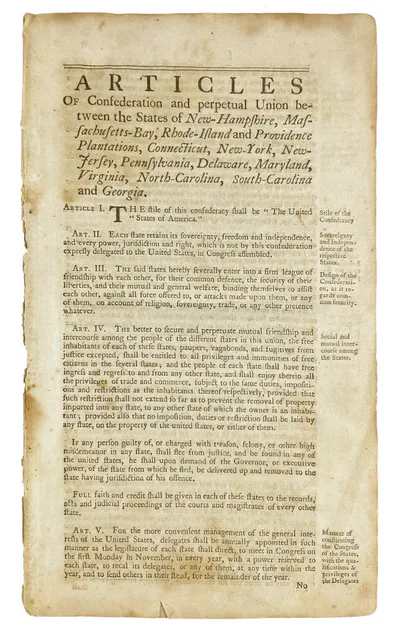 ARTICLES
OF Confederation and perpetual Union be-
tween the States of New-Hampshire, Mas-
sachusetts-Bay, Rhode-Island and Providence
Plantations, Connecticut, New-York, New-
Jersey, Pennsylvania, Delaware, Maryland,
Virginia, North-Carolina, South-Carolina
and Georgia.
ARTICLE I. THE stile of this confederacy shall be "The United
"States of America."
Stile of the
Confederacy
ART. II. EACH state retains its sovereignty, freedom and independence,
and every power, jurisdiction and right, which is not by this confederation
expressly delegated to the United States, in Congress assembled.
Sovereignty
and Indepen-
dence of the
respective
States.
ART. III. THE said states hereby severally enter into a firm league of
friendship with each other, for their common defence, the security of their
liberties, and their mutual and general welfare, binding themselves to assist
each other, against all force offered to, or attacks made upon them, or any
of them, on account of religion, sovereignty, trade, or any other pretence
whatever.
Design of the
Confederati-
on, as it re-
gards com-
mon security.
ART. IV. THE better to secure and perpetuate mutual friendship and
intercourse among the people of the different states in this union, the free
inhabitants of each of these states, paupers, vagabonds, and fugitives from
justice excepted, shall be entitled to all privileges and immunities of free
citizens in the several states; and the people of each state shall have free
ingress and regress to and from any other state, and shall enjoy therein all
the privileges of trade and commerce, subject to the same duties, impositi-
ons and restrictions as the inhabitants thereof respectively, provided that
such restriction shall not extend so far as to prevent the removal of property
imported into any state, to any other state of which the owner is an inhabi-
tant; provided also that no imposition, duties or restriction shall be laid by
any state, on the property of the united states, or either of them.
Social and
mutual inter-
course among
the States.
IF any person guilty of, or charged with treason, felony, or other high
misdemeanor in any state, shall flee from justice, and be found in any of
the united states, he shall upon demand of the Governor, or executive
power, of the state from which he fled, be delivered up and removed to the
state having jurisdiction of his offence.
FULL faith and credit shall be given in each of these states to the records,
acts and judicial proceedings of the courts and magistrates of every other
state.
ART. V. FOR the more convenient management of the general inte-
rests of the United States, delegates shall be annually appointed in such
manner as the legislature of each state shall direct, to meet in Congress on
the first Monday in November, in every year, with a power reserved to
each state, to recal its delegates, or any of them, at any time within the
year, and to send others in their stead, for the remainder of the year.
Manner of
constituting
the Congress
of the States,
with the qua-
lifications &
privileges of
the Delegates
No